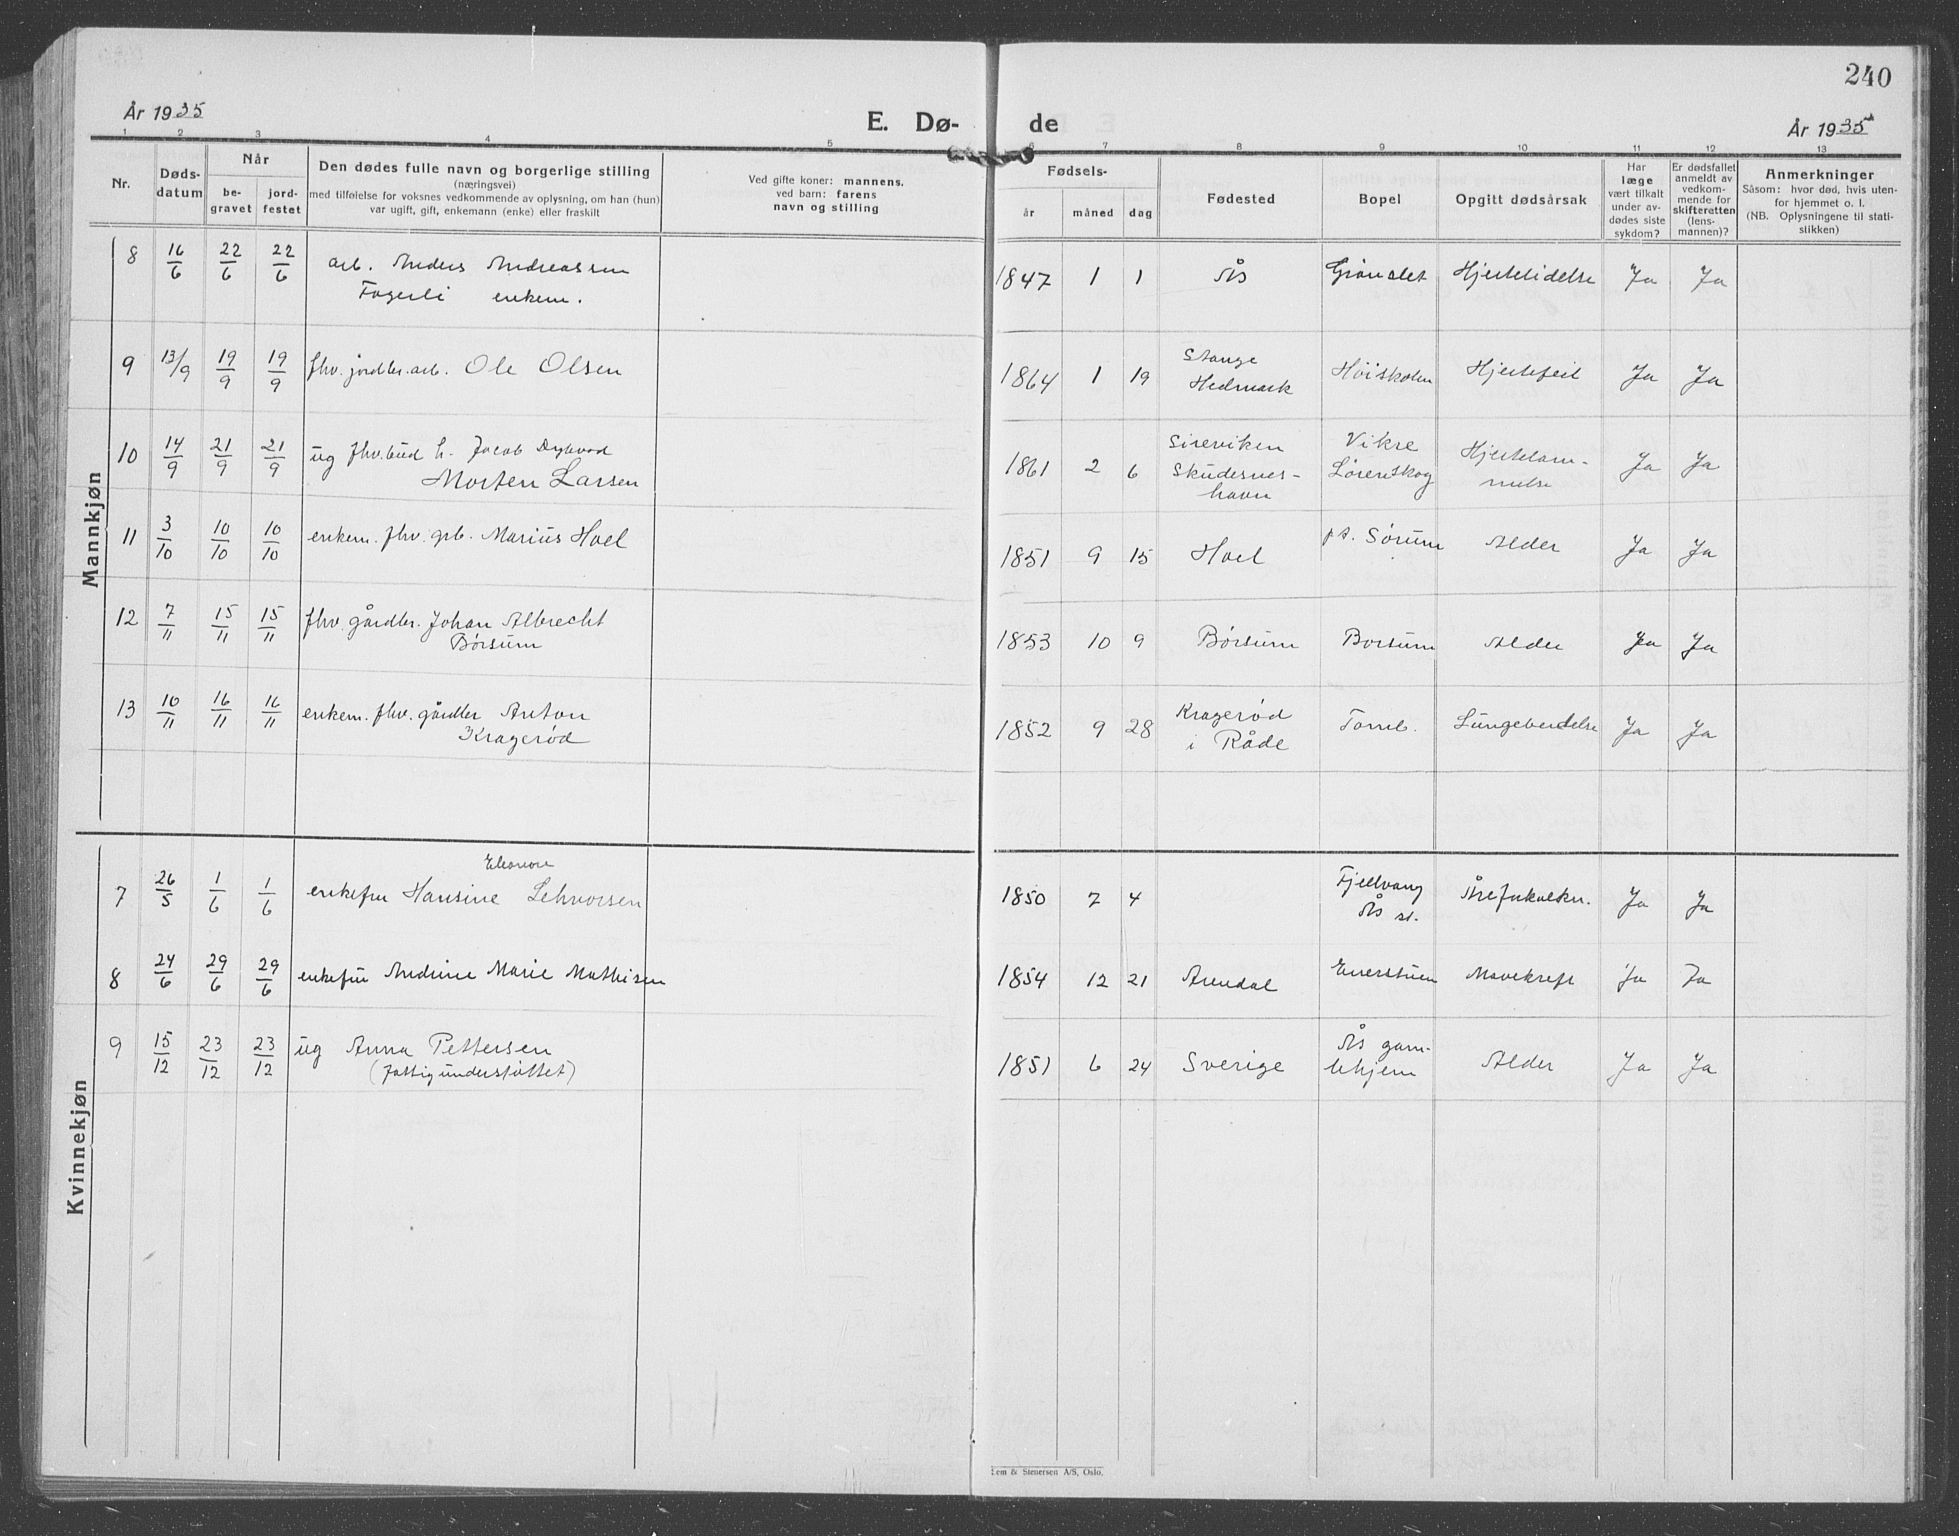 240
År 1935
E. Dø-
de
År 1935
1 2 3 4 5 6 7 8 9 10 11 12 13
Nr.
Døds-
datum
Når
be-
gravet
jord-
festet
Den dødes fulle navn og borgerlige stilling
(næringsvei)
med tilføielse for voksnes vedkommende av oplysning, om han (hun)
var ugift, gift, enkemann (enke) eller fraskilt
Ved gifte koner: mannens.
ved barn: farens
navn og stilling
Fødsels-
år måned dag
Fødested
Bopel
Opgitt dødsårsak
Har
læge
vært tilkalt
under av-
dødes siste
sykdom?
Er dødsfallet
anmeldt av
vedkom-
mende for
skifteretten
(lens-
mannen)?
Anmerkninger
Såsom: hvor død, hvis uten-
for hjemmet o. l.
(NB. Oplysningene til stati-
stikken)
Mannkjøn
8 16/6 22/6 22/6 arb. Anders Andreassen
Fagerli enkem.
1847 1 1 Ås Grønslet Hjertelidelse Ja Ja
9 13/9 19/9 19/9 fhv. jordbr. arb. Ole Olsen
1864 1 19 Stange
Hedmark
Høiskolen Hjertefeil Ja Ja
10 14/9 21/9 21/9 ug fhv. bud h. Jacob Dybwad
Morten Larsen
1861 2 6 Sireviken
Skudesnes-
havn
Vikre
Lørenskog
Hjertelam-
melse
Ja Ja
11 3/10 10/10 10/10 enkem. fhv. grb. Marius Hoel
1851 9 15 Hoel pt. Sørum Alder Ja Ja
12 7/11 15/11 15/11 fhv. gårdbr. Johan Albrecht
Børsum
1853 10 9 Børsum Borsum Alder Ja Ja
13 10/11 16/11 16/11 enkem. fhv. gårdbr Anton
Kragerød
1852 9 28 Kragerød
i Råde
Tomb. Lungebetendelse Ja Ja
Kvinnekjøn
Eleonore
7 26/5 1/6 1/6 enkefru Hansine
1850 7 4 Fjellvang
Ås st.
Åreforkalkn. Ja Ja
8 24/6 29/6 29/6 enkefru Andrine Marie Mathisen
1854 12 21 Arendal Enerstuen Mavekreft Ja Ja
9 15/12 23/12 23/12 ug Anna Pettersen
(fattigunderstøttet)
1851 6 24 Sverige Ås gam-
lehjem
Alder Ja Ja
Lem & Stenersen A/S, Oslo.